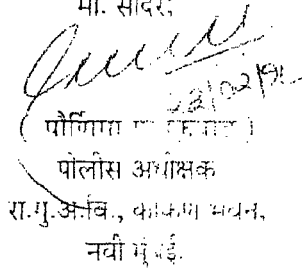 मा. सादर,
पौर्णिमा
पोलीस अधीक्षक
रा.गु.अ.वि., कोकण भवन,
नवी मुंबई.